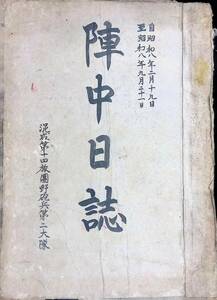 自昭和八年二月十九日
至昭和八年九月三十一日
陣中日誌
混成第十四旅團野砲兵第二大隊